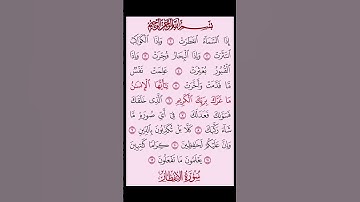 بِسْمِ اللَّهِ الرَّحْمَٰنِ الرَّحِيمِ
إِذَا ٱلسَّمَآءُ ٱنفَطَرَتْ ۝ وَإِذَا ٱلْكَوَاكِبُ
ٱنتَثَرَتْ ۝ وَإِذَا ٱلْبِحَارُ فُجِّرَتْ ۝ وَإِذَا
ٱلْقُبُورُ بُعْثِرَتْ ۝ عَلِمَتْ نَفْسٌ
مَّا قَدَّمَتْ وَأَخَّرَتْ ۝ يَٰٓأَيُّهَا ٱلْإِنسَٰنُ
مَا غَرَّكَ بِرَبِّكَ ٱلْكَرِيمِ ۝ ٱلَّذِى خَلَقَكَ
فَسَوَّىٰكَ فَعَدَلَكَ ۝ فِىٓ أَىِّ صُورَةٍ مَّا
شَآءَ رَكَّبَكَ ۝ كَلَّا بَلْ تُكَذِّبُونَ بِٱلدِّينِ
۝ وَإِنَّ عَلَيْكُمْ لَحَٰفِظِينَ ۝ كِرَامًا كَٰتِبِينَ
۝ يَعْلَمُونَ مَا تَفْعَلُونَ ۝
سُورَةُ الانفِطَارِ